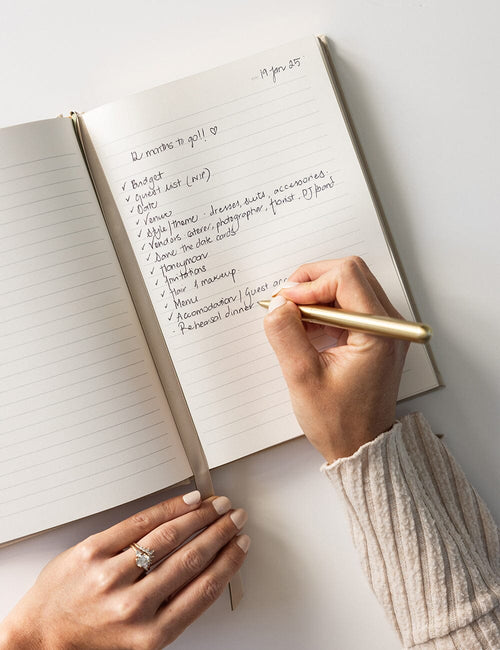 19 Jan 25
12 months to go!! ♡
✓ Budget
✓ Guest list (WIP)
✓ Date
✓ Venue
✓ Style/theme: dresses, suits, accessories,
✓ Vendors: caterer, photographer, florist, DJ/band
✓ Save the date cards
✓ Honeymoon
✓ Invitations
✓ Hair & makeup
✓ Menu
✓ Accomodation/Guest
- Rehersal dinner